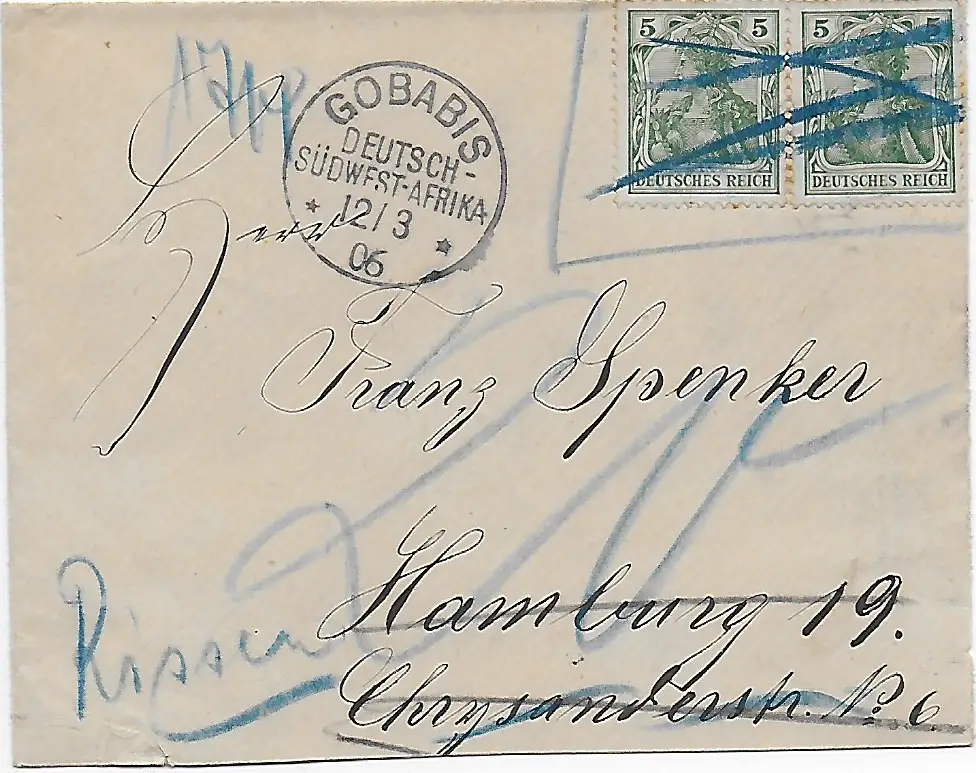 5 5 5 5
DEUTSCHES REICH DEUTSCHES REICH
GOBABIS
DEUTSCH-
SÜDWEST-AFRIKA
12/3
06
Herrn
Franz Spenker
Hamburg 19.
Chrysanderstr. No 6
Rissen